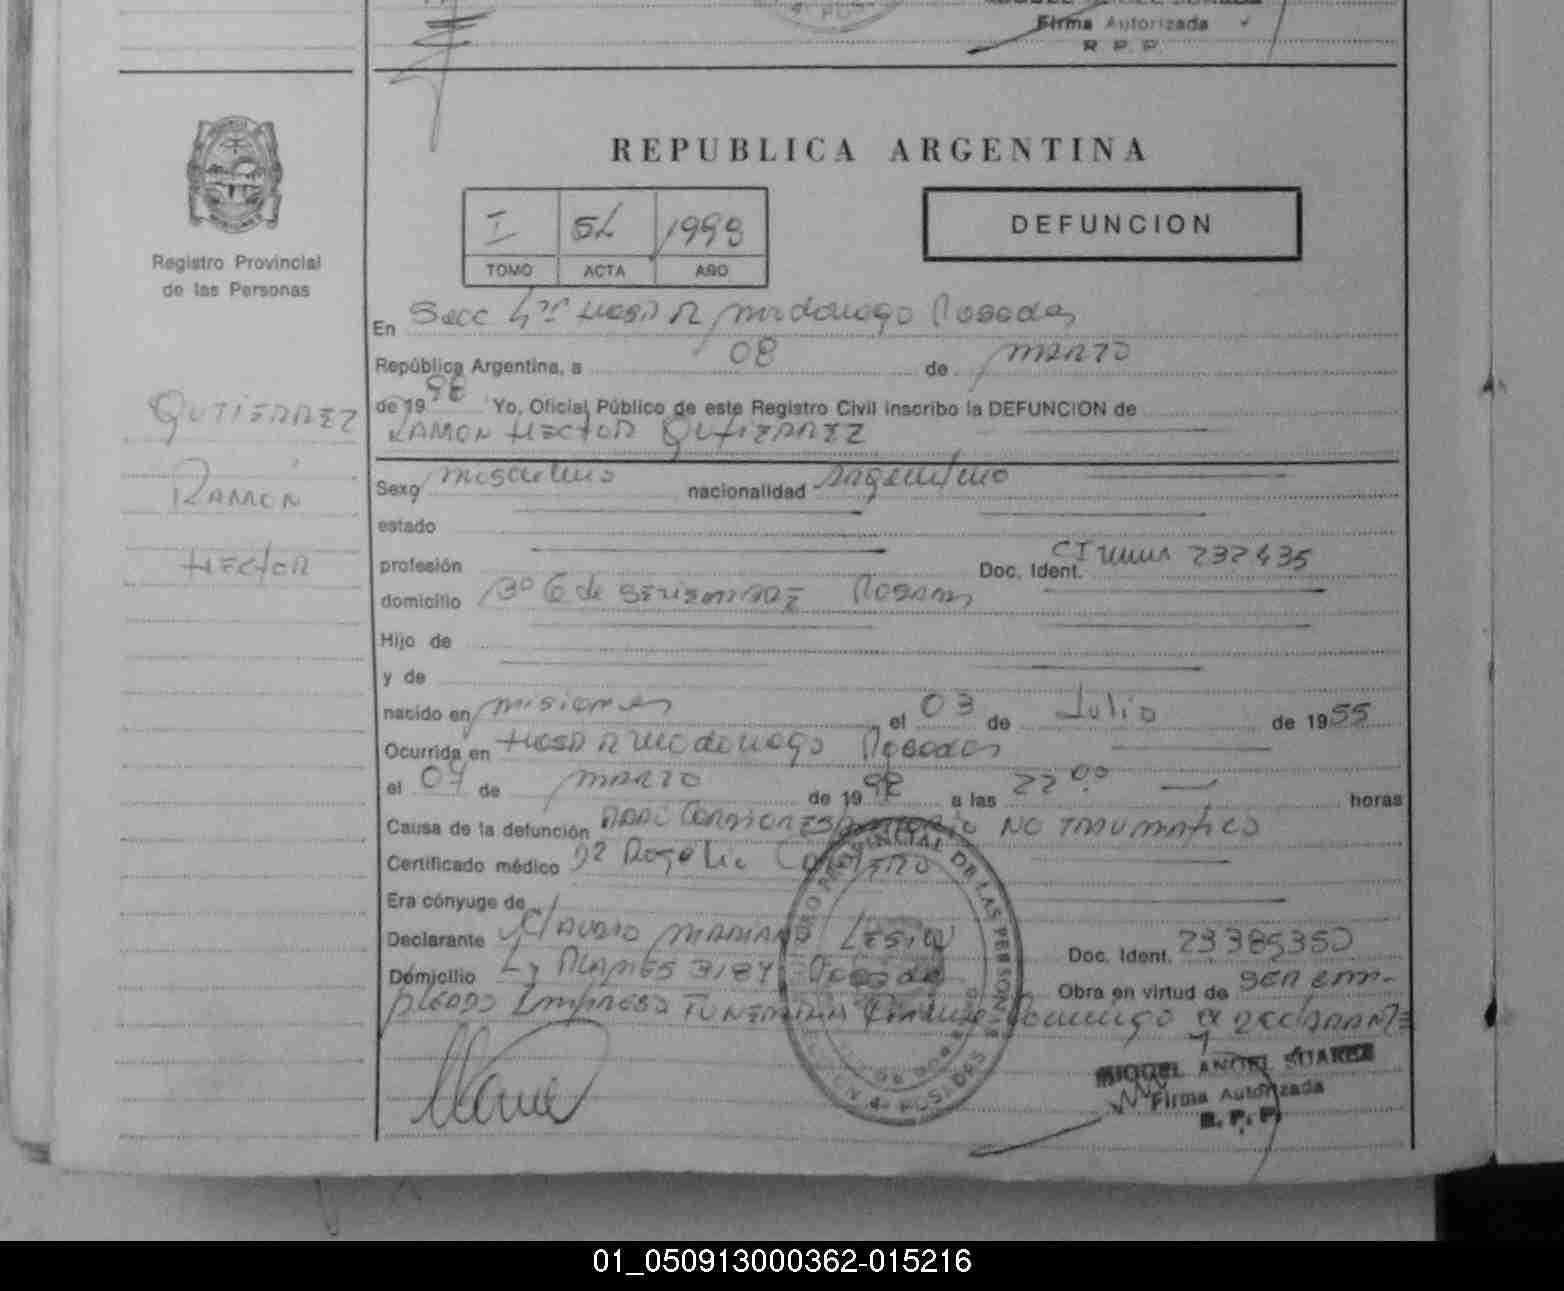 Firma Autorizada
R. P. P.
REPUBLICA ARGENTINA
I 54 1998
TOMO ACTA AÑO
DEFUNCION
Registro Provincial
de las Personas
GUTIERREZ
RAMON
HECTOR
En Secc 4ta Hosp R Madariaga Posadas
República Argentina, a 08 de MARZO
de 1998 Yo, Oficial Público de este Registro Civil inscribo la DEFUNCION de
RAMON HECTOR GUTIERREZ
Sexo masculino nacionalidad Argentino
estado
profesión Doc. Ident. CI 232435
domicilio Bº 6 de SETIEMBRE Posadas
Hijo de
y de
nacido en misiones el 03 de Julio de 1955
Ocurrida en HOSP R Madariaga Posadas
el 07 de MARZO de 1998 a las 22:00 horas
Causa de la defunción PARO CARDIORESPIRATORIO NO TRAUMATICO
Certificado médico Dr Rogelio
Era cónyuge de
Declarante CLAUDIO MARIANO
Doc. Ident. 23385350
Domicilio Posadas
Obra en virtud de ser em-
pleado Empresa FUNERARIA Domingo y DECLARANTE
REGISTRO PROVINCIAL DE LAS PERSONAS
4ª POSADAS
MIGUEL ANGEL SUAREZ
Firma Autorizada
R. P. P.
01_050913000362-015216